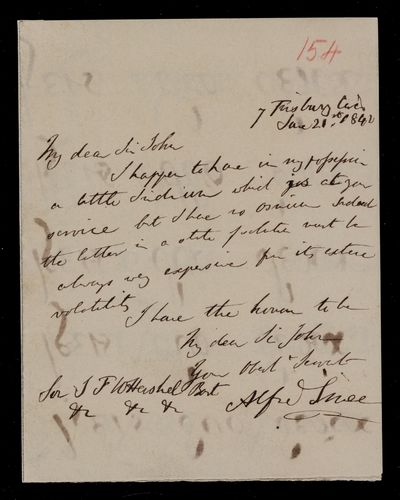 154
7 Finsbury Circ
June 21st 1842
My dear Sir John
I happen to have in my possession
a little Iridium which is at your
service but I have no osmium Indeed
the latter in a state of must be
always very expensive from its extreme
volatility
I have the honour to be
My dear Sir John
Your Obedt Servt
Sir J F W Herschel Bart
&c &c &c
Alfred Smee